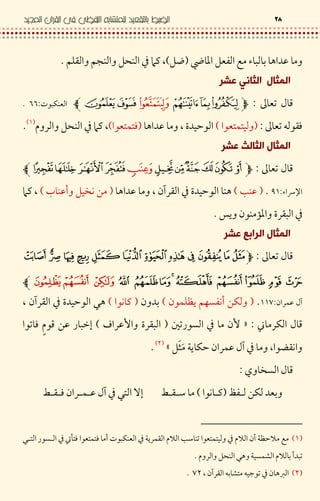 الضبط بالتقعيد للمتشابه اللفظي في القرآن المجيد
٢٨
وما عداها بالباء مع الفعل الماضي (ضل)، كما في النحل والنجم والقلم .
المثال الثاني عشر
قال تعالى : ﴿ لِيَكْفُرُوا۟ بِمَآ ءَاتَيْنَٰهُمْ وَلِيَتَمَتَّعُوا۟ فَسَوْفَ يَعْلَمُونَ ﴾ العنكبوت: ٦٦ .
فقوله تعالى : (وليتمتعوا ) الوحيدة ، وما عداها (فتمتعوا)، كما في النحل والروم(١).
المثال الثالث عشر
قال تعالى : ﴿ أَوْ تَكُونَ لَكَ جَنَّةٌ مِّن نَّخِيلٍ وَعِنَبٍ فَتُفَجِّرَ ٱلْأَنْهَٰرَ خِلَٰلَهَا تَفْجِيرًا ﴾
الإسراء: ٩١ . ( عنب ) هنا الوحيدة في القرآن ، وما عداها ( من نخيل وأعناب ) ، كما
في البقرة والمؤمنون ويس .
المثال الرابع عشر
قال تعالى : ﴿ مَثَلُ مَا يُنفِقُونَ فِى هَٰذِهِ ٱلْحَيَوٰةِ ٱلدُّنْيَا كَمَثَلِ رِيحٍ فِيهَا صِرٌّ أَصَابَتْ
حَرْثَ قَوْمٍ ظَلَمُوٓا۟ أَنفُسَهُمْ فَأَهْلَكَتْهُ ۚ وَمَا ظَلَمَهُمُ ٱللَّهُ وَلَٰكِنْ أَنفُسَهُمْ يَظْلِمُونَ ﴾
آل عمران: ١١٧. ( ولكن أنفسهم يظلمون ) بدون ( كانوا ) هي الوحيدة في القرآن ،
قال الكرماني : « لأن ما في السورتين ( البقرة والأعراف ) إخبار عن قومٍ فاتوا
وانقضوا، وما في آل عمران حكاية مَثَل » (٢) .
قال السخاوي :
وبعد لكن لـفظ (كـانوا ) ما سـقـط إلا التي في آل عمـران فـقـط
(١) مع ملاحظة أن اللام في وليتمتعوا تناسب اللام القمرية في العنكبوت أما فتمتعوا فتأتي في السور التي
تبدأ باللام الشمسية وهي النحل والروم .
(٢) البرهان في توجيه متشابه القرآن ، ٧٢ .